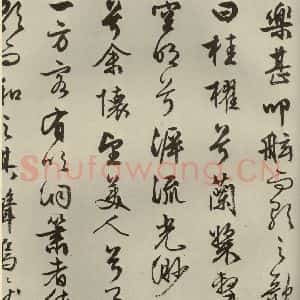 樂甚叩舷而歌之歌
曰桂櫂兮蘭槳擊
空明兮泝流光渺
兮余懷望美人兮天
一方客有吹洞簫者倚
歌而和之其聲嗚
Shufawang.CN